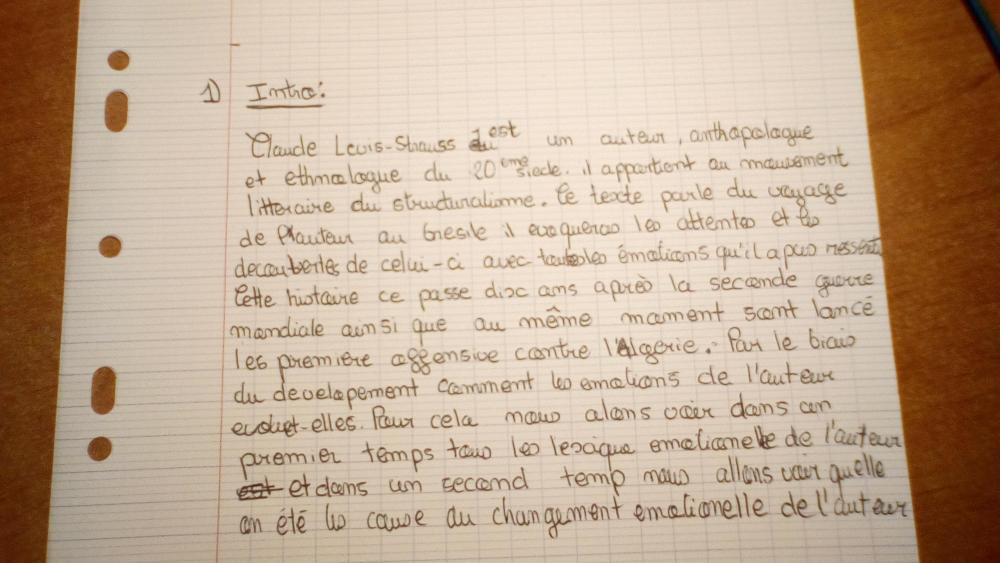 1) Intro:
Claude Levis-Strauss est un auteur, anthapologue
et ethnologue du 20 ème siecle. il appartient au mouvement
litteraire du structuralisme. Ce texte parle du voyage
de l'auteur au bresile il evoqueras les attentes et les
decoubertes de celui-ci avec toutes les émotions qu'il a pus ressentit
Cette histoire ce passe disc ans après la seconde guerre
mondiale ainsi que au même moment sont lancé
les première offensive contre l'Algerie. Par le biais
du developement Comment les emotions de l'auteur
evoluet-elles. Pour cela nous alons voir dans un
premier temps tous les lexique emotionelle de l'auteur
et dans un second temp nous allons voir quelle
on été les cause du changement emotionelle de l'auteur